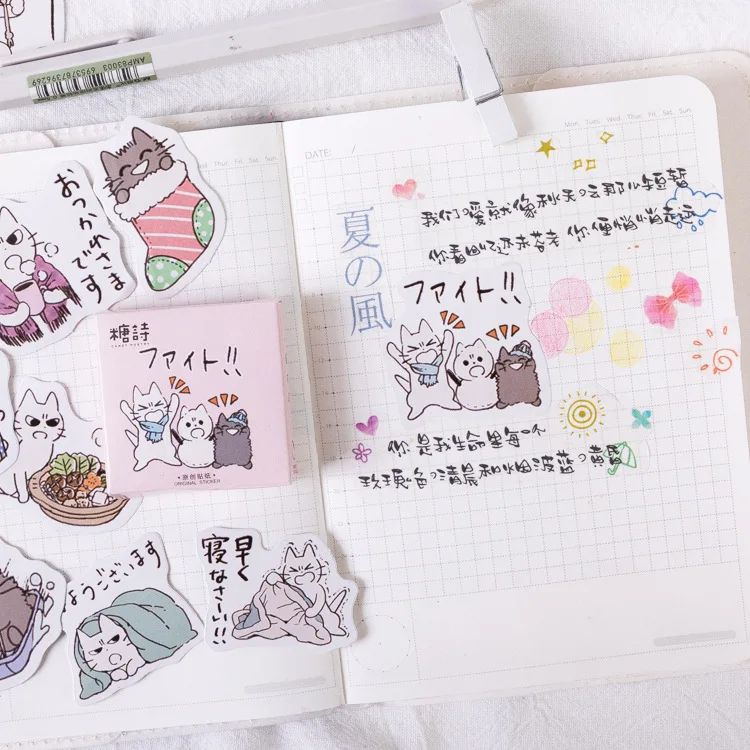 AMP83003 6953787396269
おつかれさま
です
糖詩
CANDY POETRY
ファイト!!
•原创贴纸•
ORIGINAL STICKER
ようございます
早く
寝なさーい!!
DATE: /
Mon. Tues. Wed. Thu. Fri. Sat. Sun.
我们の愛就像秋天の云那么短暂
你看回忆还未苍老 你便悄悄走远
夏の風
ファイト!!
你是我生命里每一个
玫瑰色の清晨和烟波蓝の黄昏